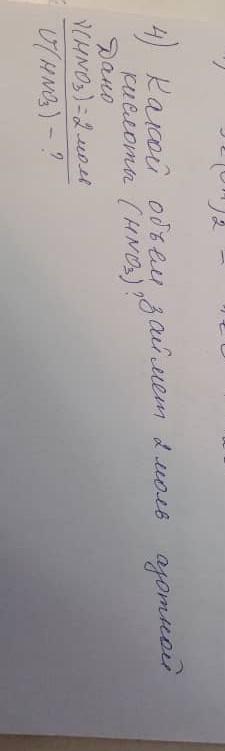 4) Какой объем займет 2 моль азотной
кислоты (HNO3)?
Дано
ν(HNO3)=2 моль
V(HNO3) - ?